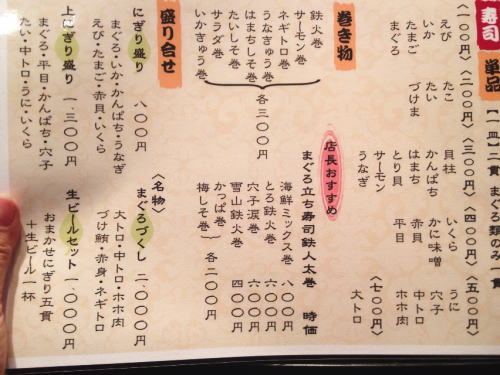 寿司 単品 【一皿】二貫 まぐろ類のみ一貫
〈一〇〇円〉〈二〇〇円〉〈三〇〇円〉〈四〇〇円〉〈五〇〇円〉
えび たこ 貝柱 いくら うに
いか たい かんぱち かに味噌 穴子
たまご づけま はまち 赤貝 中トロ
まぐろ とり貝 平目 ホホ肉
サーモン 〈七〇〇円〉
うなぎ 大トロ
巻き物
鉄火巻
サーモン巻
ネギトロ巻
うなきゅう巻
はまちしそ巻
たいしそ巻
サラダ巻
いかきゅう巻
各三〇〇円
店長おすすめ
まぐろ立ち寿司鉄人太巻 時価
海鮮ミックス巻 八〇〇円
とろ鉄火巻 六〇〇円
穴子涙巻 六〇〇円
雪山鉄火巻 四〇〇円
かっぱ巻
梅しそ巻
各二〇〇円
盛り合せ
にぎり盛り 八〇〇円
まぐろ・いか・かんぱち・うなぎ
えび・たまご・赤貝・いくら
上にぎり盛り 一、三〇〇円
まぐろ・平目・かんぱち・穴子
たい・中トロ・うに・いくら
〈名物〉
まぐろづくし 二、〇〇〇円
大トロ・中トロ・ホホ肉
づけ鮪・赤身・ネギトロ
生ビールセット 一、〇〇〇円
おまかせにぎり五貫
+生ビール一杯